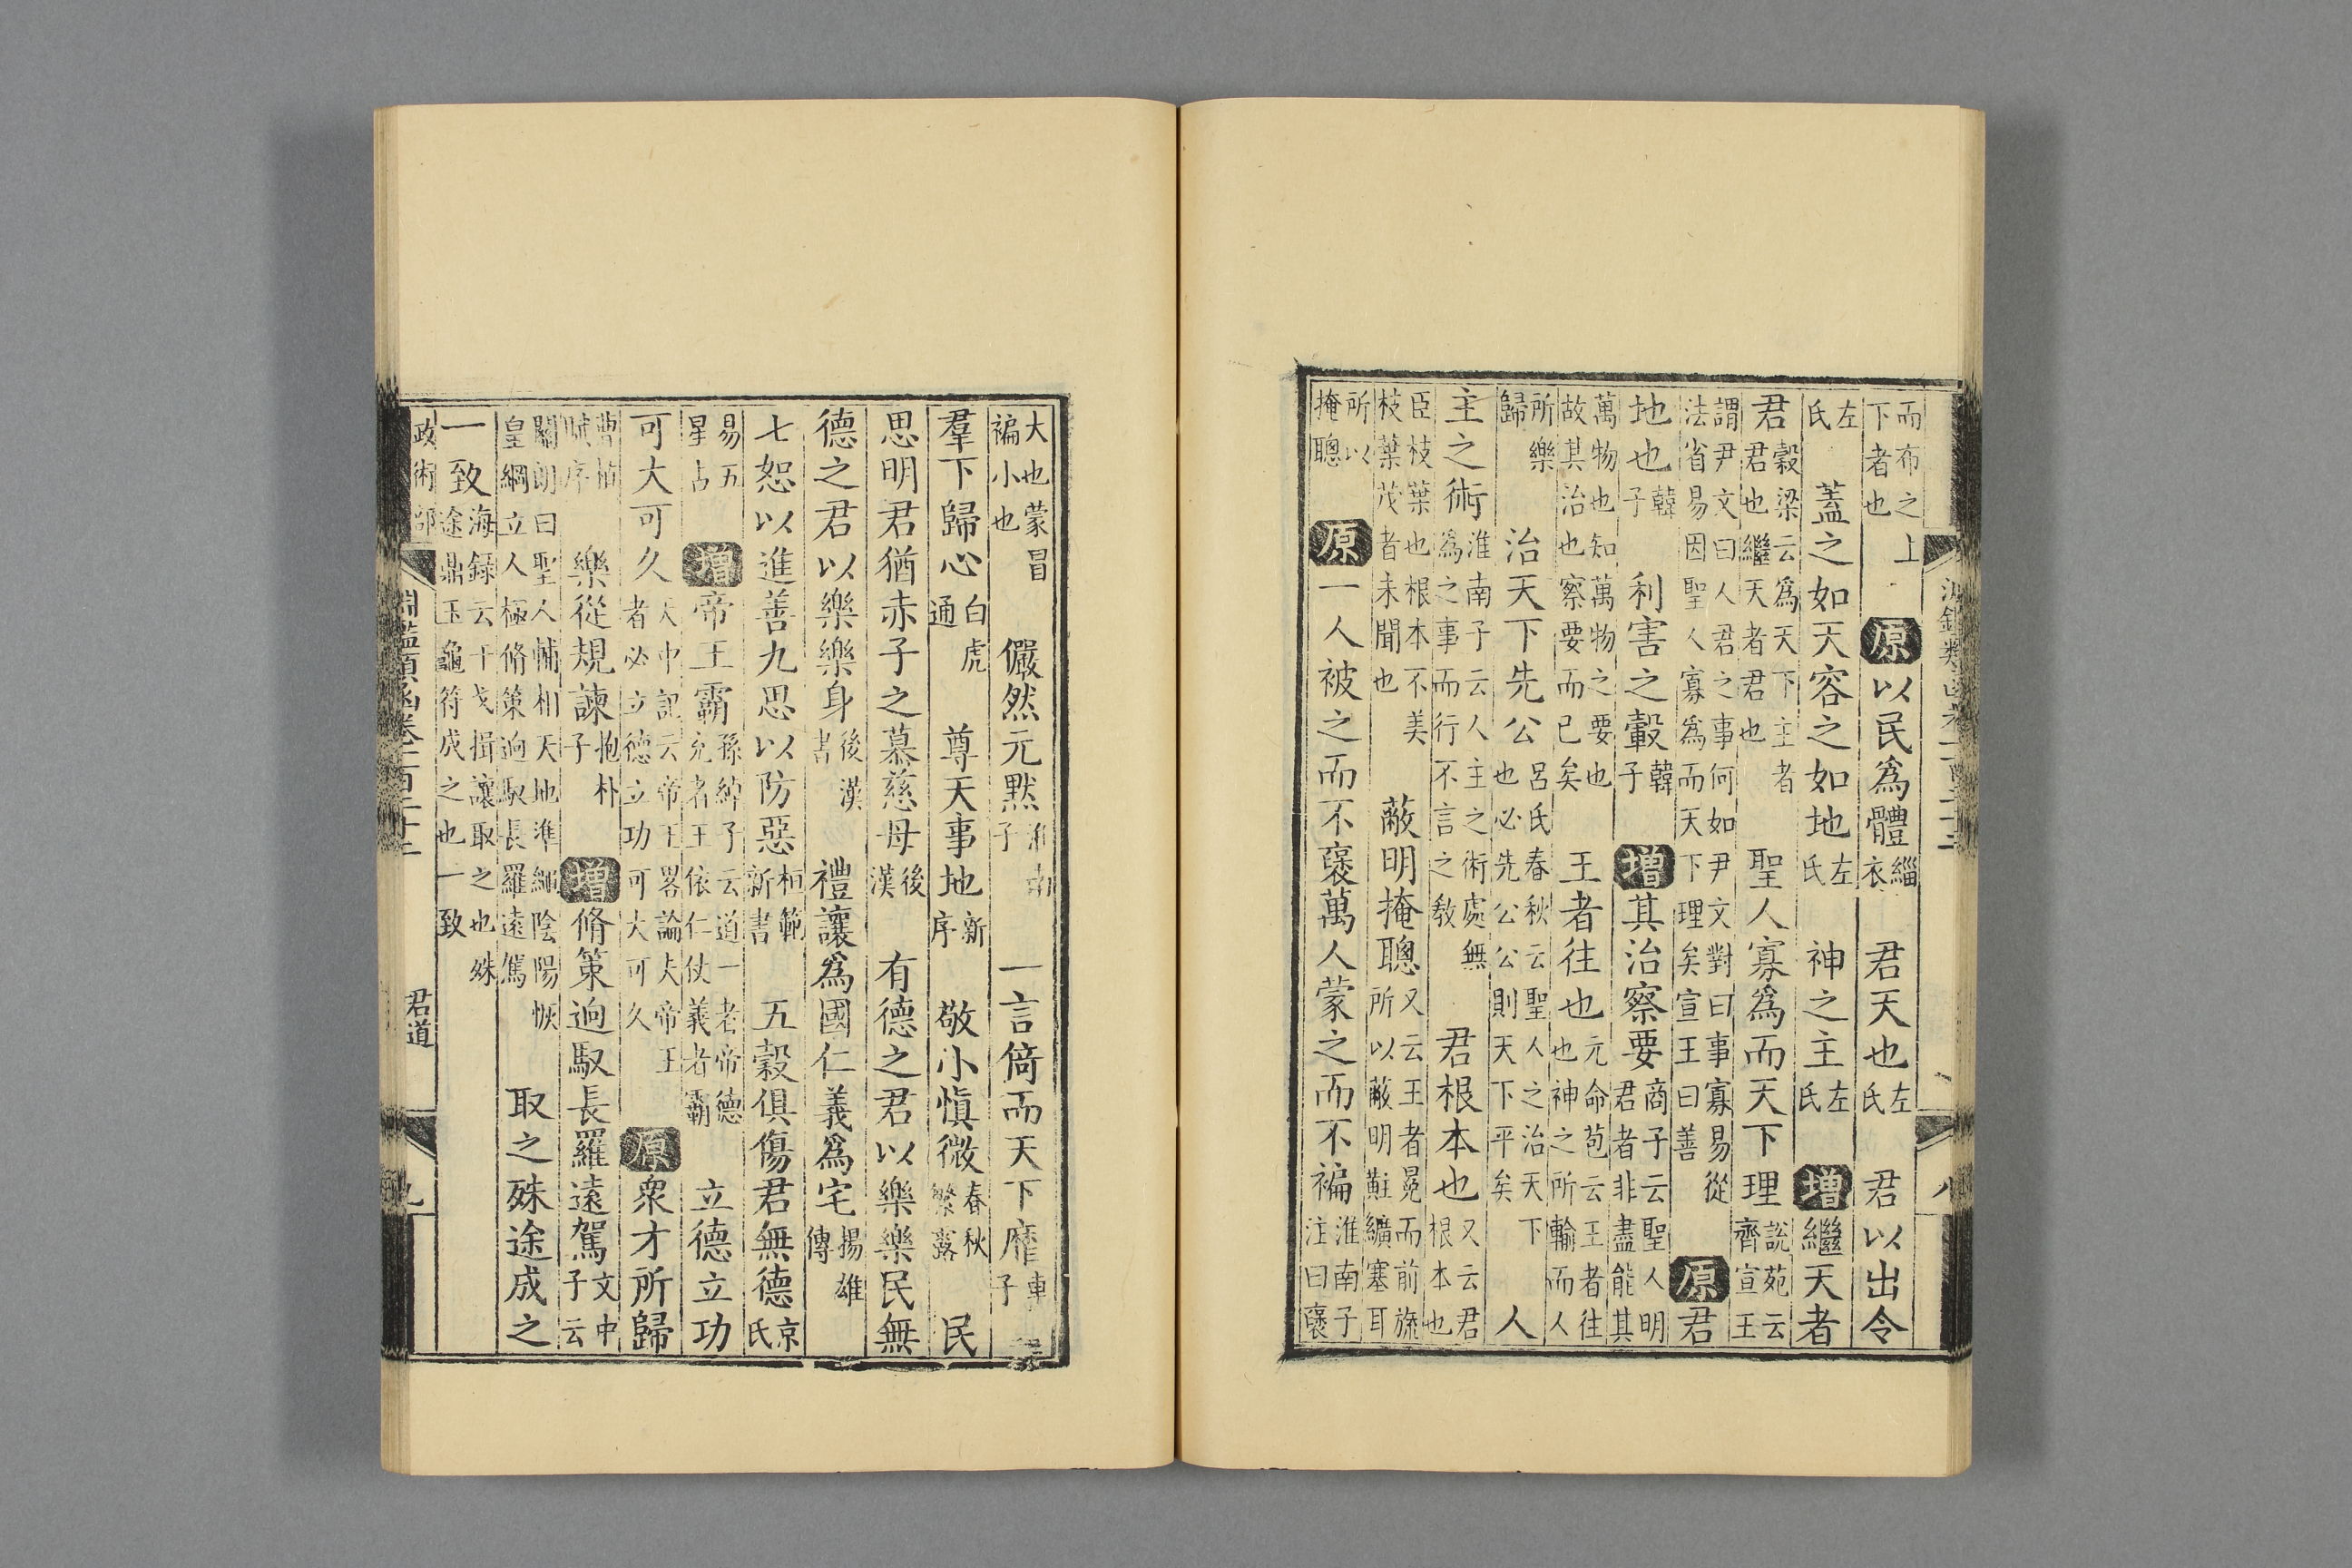 而布之上下者也原以民為體緇衣君天也左氏君以出令
左氏蓋之如天容之如地左氏神之主左氏增繼天者
君穀梁云為天下主者君也繼天者君也聖人寡為而天下理說苑云齊宣王
謂尹文曰人君之事何如尹文對曰事寡易從法省易因聖人寡為而天下理矣宣王曰善原君
地也韓子利害之轂韓子增其治察要商子云聖人明君者非盡能其
萬物也知萬物之要也故其治也察要而已矣王者往也元命苞云王者往也神之所輸而人
所樂歸治天下先公呂氏春秋云聖人之治天下也必先公公則天下平矣人
主之術淮南子云人主之術處無為之事而行不言之教君根本也又云君根本也
臣枝枝葉也根本不美枝葉茂者未聞也蔽明掩聰又云王者冕而前旒所以蔽明黈纊塞耳
所以掩聰原一人被之而不襃萬人蒙之而不褊淮南子注曰襃
大也蒙冒褊小也儼然元默淮南子一言倚而天下靡
羣下歸心白虎通尊天事地新序敬小慎微春秋繁露民
思明君猶赤子之慕慈母後漢有德之君以樂樂民無
德之君以樂樂身後漢書禮讓為國仁義為宅揚雄傳
七恕以進善九思以防惡桓範新書五穀俱傷君無德京氏
易五星占增帝王霸孫綽子云道一者帝德充者王依仁仗義者霸立德立功
可大可久天中記云帝王畧論夫帝王者必立德立功可大可久原衆才所歸
曹植賦序樂從規諫抱朴子增脩策逈馭長羅遠駕文中子云
關朗曰聖人輔相天地準繩陰陽恢皇綱立人極脩策逈馭長羅遠駕取之殊途成之
一致海録云干戈揖讓取之也殊途鼎玉龜符成之也一致
政術部 淵鑑類函卷一百二十二 君道 九